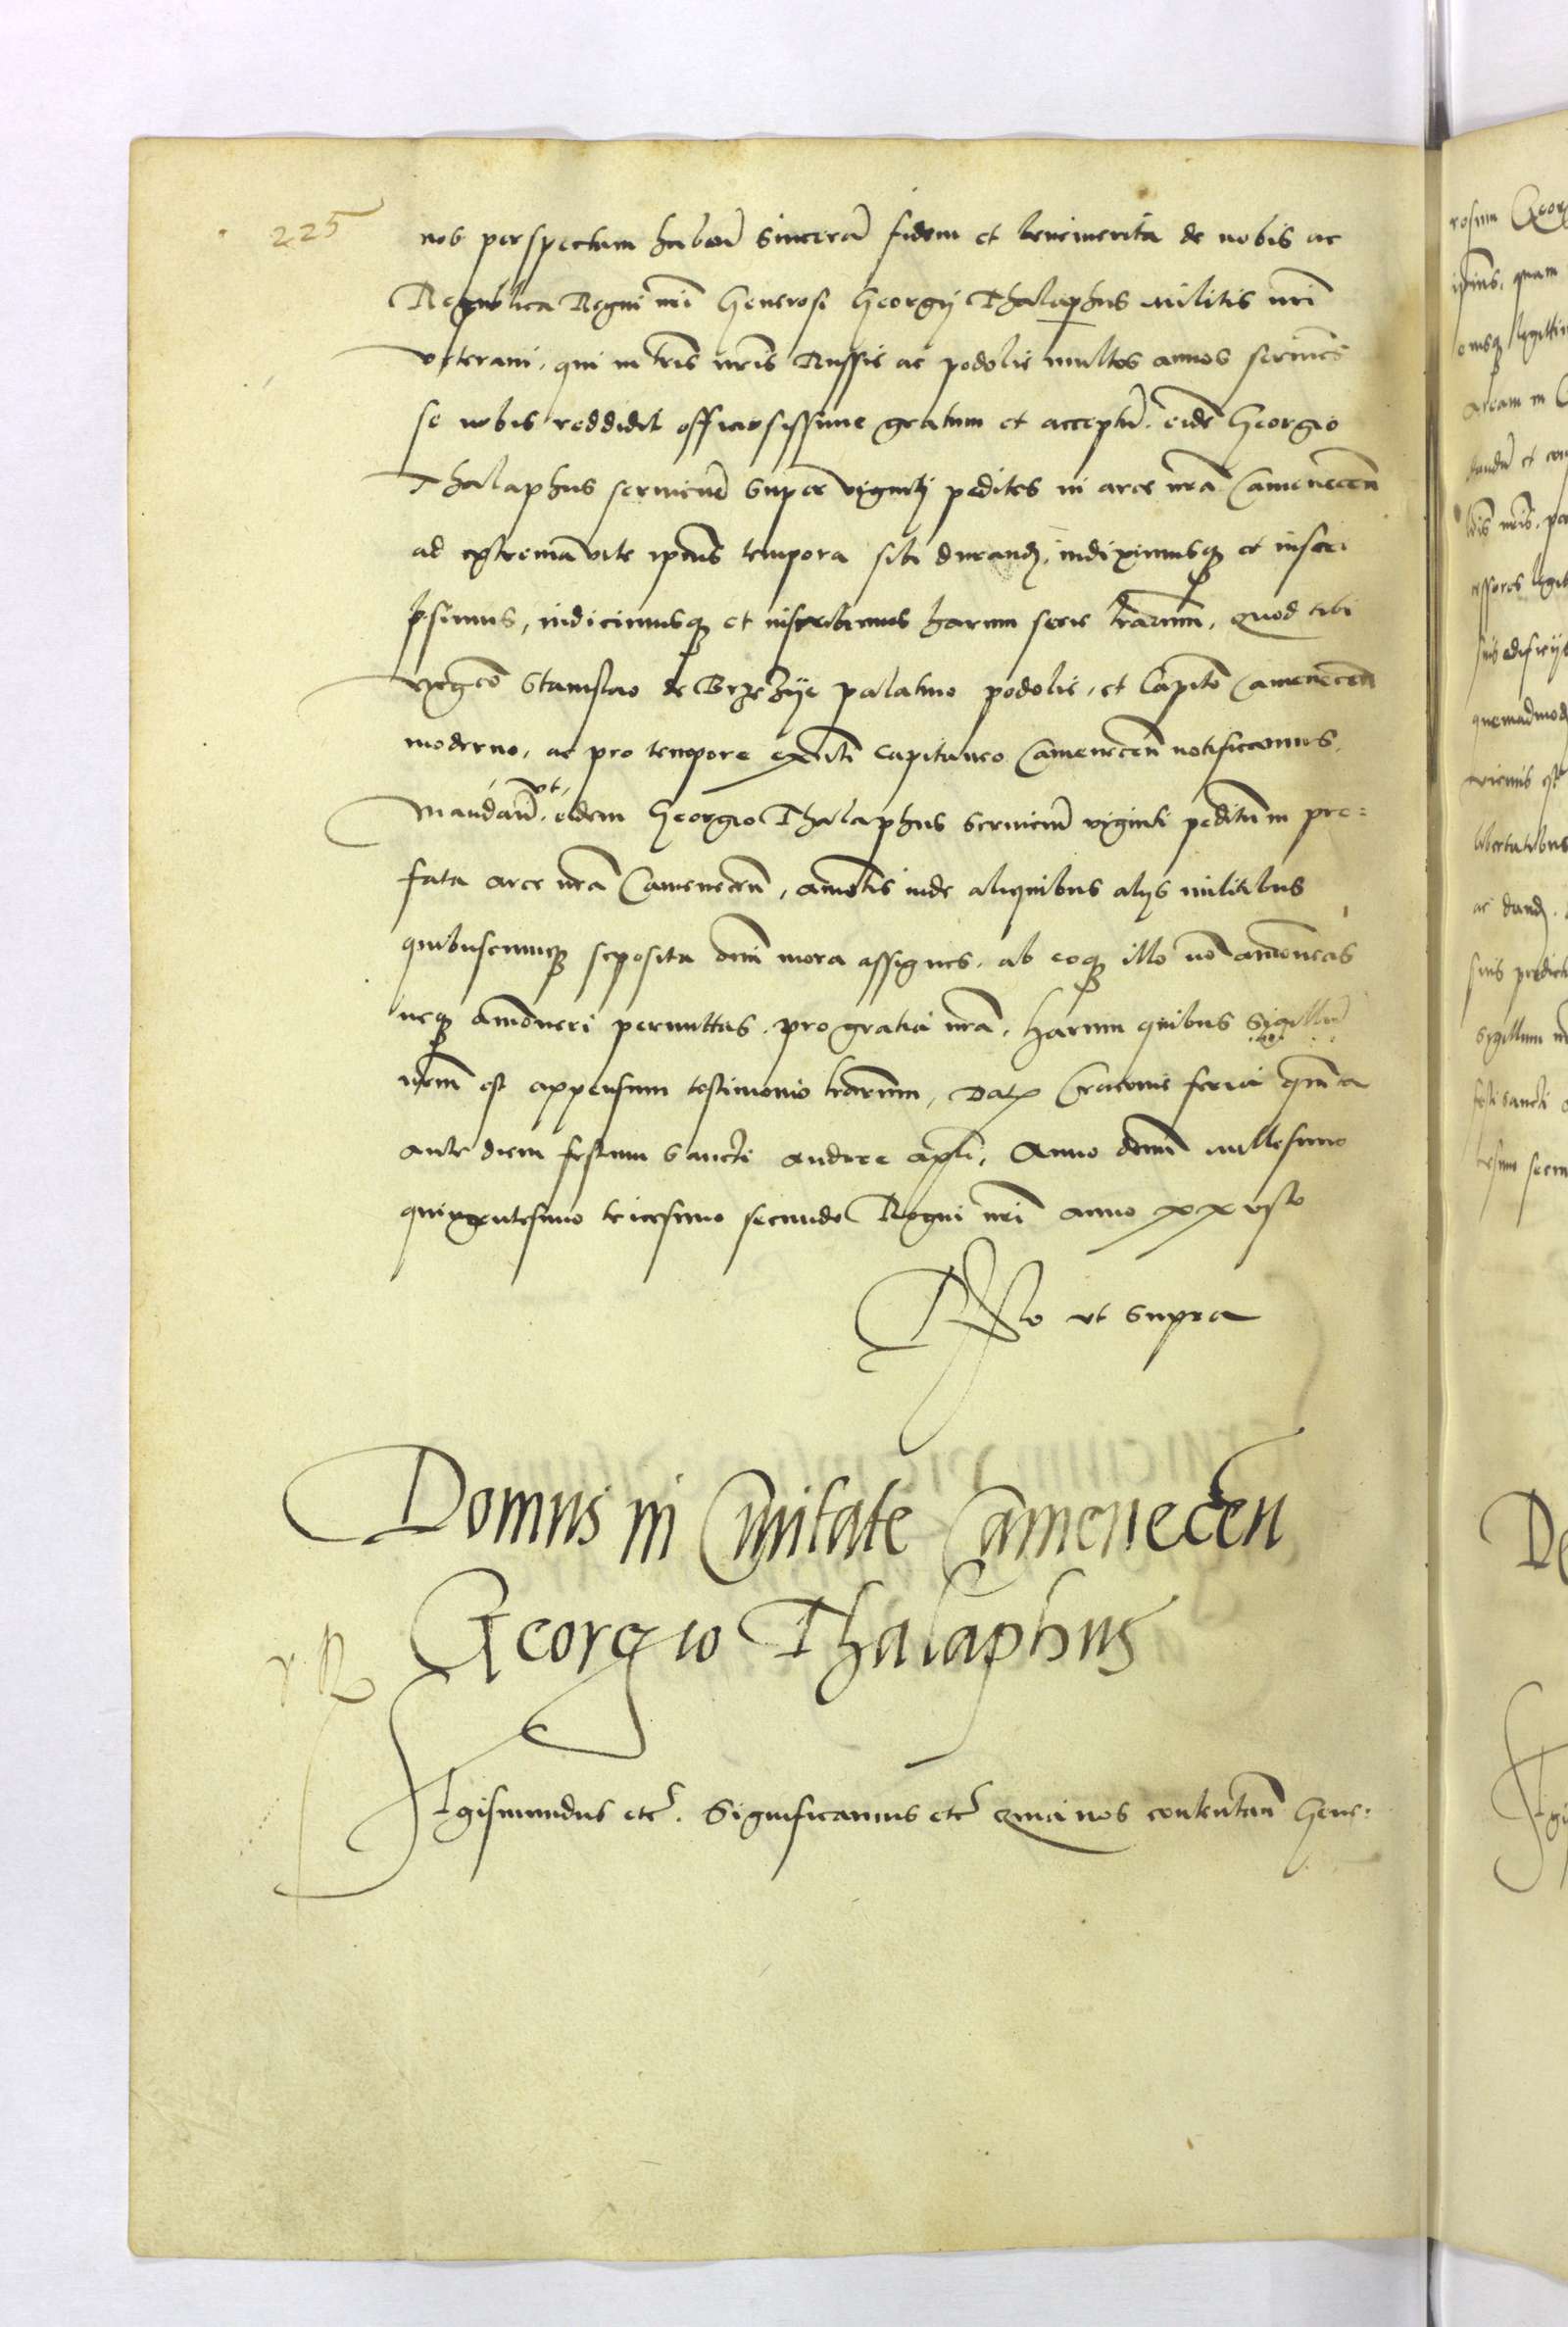 225
nos perspectam haben̄ sincerā fidem et benemerita de nobis ac
Republica Regni nrī Generosi Georgij Thalaphus militis nrī
veterani, qui in terris nrīs Russie ac podolie multos annos seruiens
se nobis reddidit officiosissime gratum et acceptū. eidē Georgio
Thalaphus seruiciū super viginti pedites in arce nrā Camenecen̄
ad extrema vite ipīus tempora sibi durandum, indiximusq et inscri
psimus, indicimusq et inscribimus harum serie lrārum, quod tibi
Stanislao de palatino podolie, et Capitō Camenecen̄
moderno, ac pro tempore existēti Capitaneo Camenecen̄ notificamus,
Mandan̄ vt eidem Georgio Thalaphus seruiciū viginti peditum pre=
fata arce nrā Camenecen̄, amotis inde aliquibus alijs militibus
quibuscunq seposita omī mora assignes, ab eoq illo nō amoueas
neq amoueri permittas, pro gratia nrā, harum quibus Sigillū
nrūm est appensum testimonio lrārum, Dat Cracouie feria quīta
ante diem festum Sancti Andree apli, Anno domī millesimo
quingentesimo tricesimo secundo Regni nrī anno xxvjto
Rlo vt supra
Domus in Ciuitate Camenecen̄
Georgio Thalaphus
Sigismundus etc. Significamus etc quia nos contentam̄ Gene=
rosum Georg
ipius, quam
omsq legittim
Aream in C
tandū et con
nrīs, pa
legit
edificijs
quemadmod
est
libertatibus
ac dand
suis predict
Sigillum n
festi sancti
secun
De